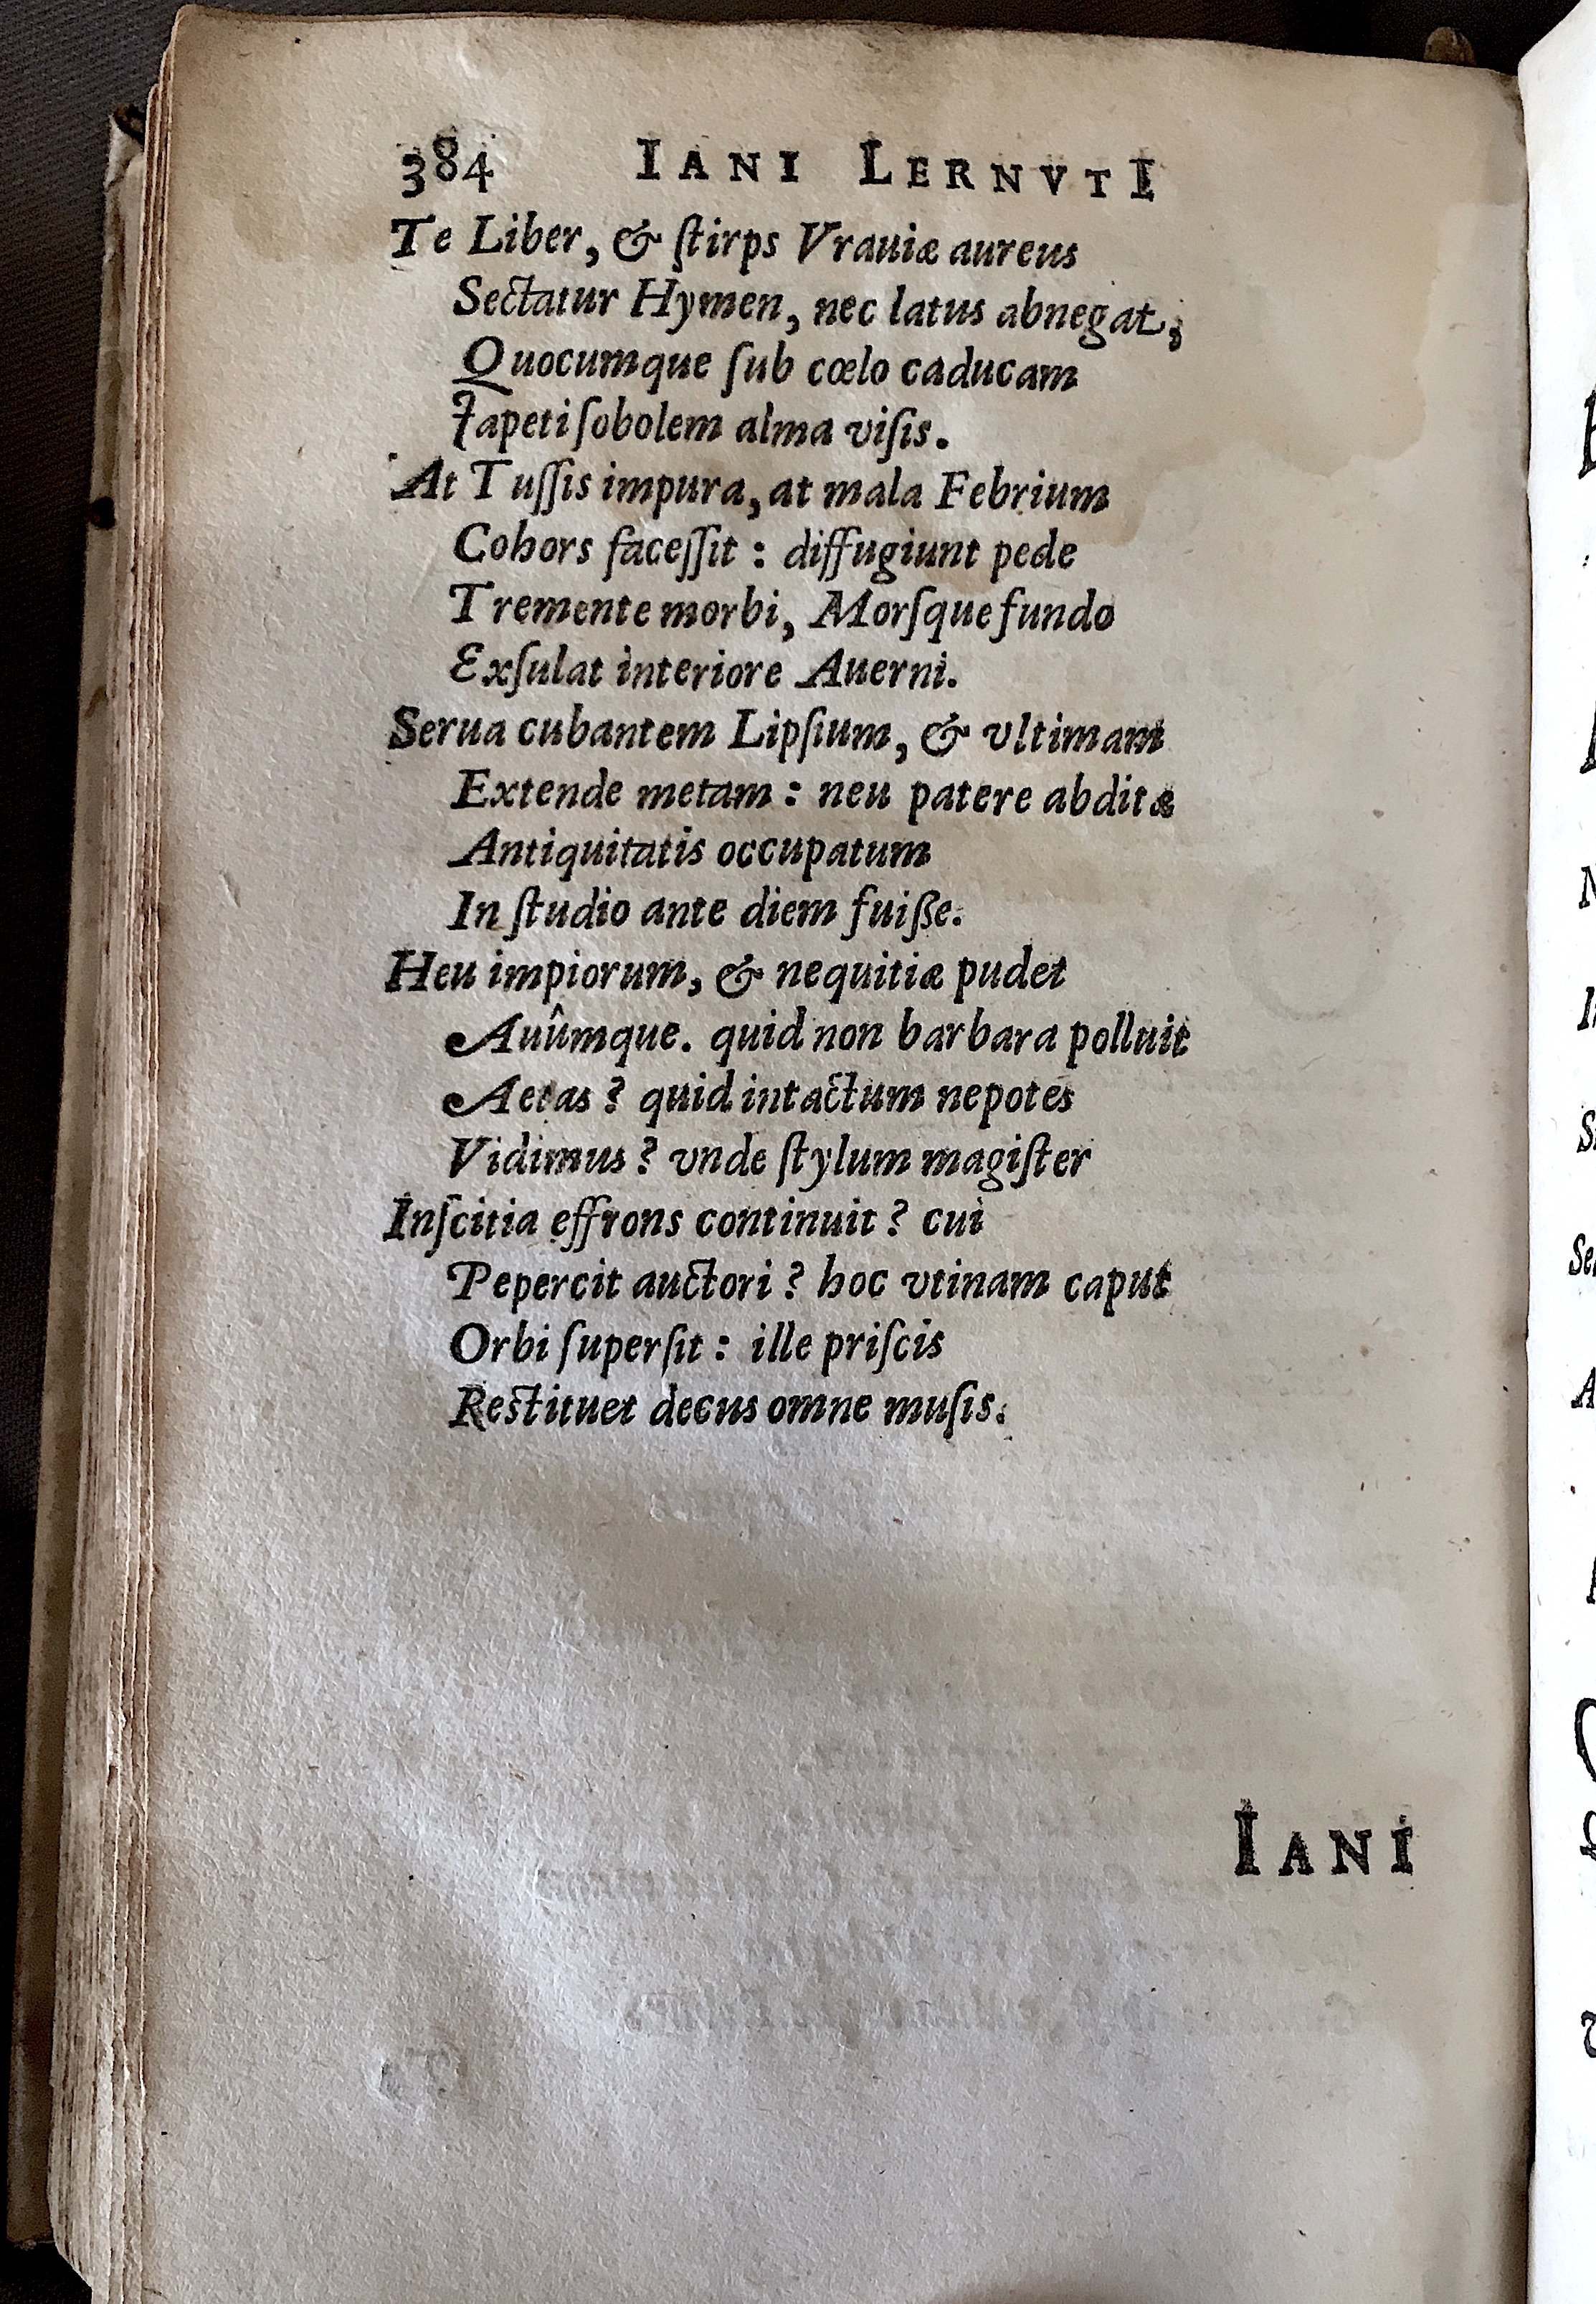 384 IANI LERNVTI
Te Liber, & ſtirps Vraniæ aureus
Sectatur Hymen, nec latus abnegat,
Quocumque ſub cœlo caducam
Iapeti ſobolem alma viſis.
At Tuſſis impura, at mala Febrium
Cohors faceſſit : diffugiunt pede
Tremente morbi, Morſque fundo
Exſulat interiore Auerni.
Serua cubantem Lipſium, & vltimam
Extende metam : neu patere abditæ
Antiquitatis occupatum
In ſtudio ante diem fuiße.
Heu impiorum, & nequitiæ pudet
Auûmque. quid non barbara polluit
Aetas ? quid intactum nepotes
Vidimus ? vnde ſtylum magiſter
Inſcitia effrons continuit ? cui
Pepercit auctori ? hoc vtinam caput
Orbi ſuperſit : ille priſcis
Reſtituet decus omne muſis.
IANI